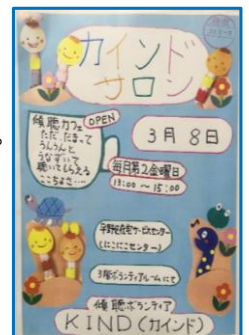 カインド
サロン
傾聴カフェ
OPEN
ただ、だまって
うんうんと
うなずいて
聴いてもらえる
ここちよさ…
3月8日
毎月第2金曜日
13:00〜15:00
(にこにこセンター)
3階ボランティアルームにて
傾聴ボランティア
KIND(カインド)